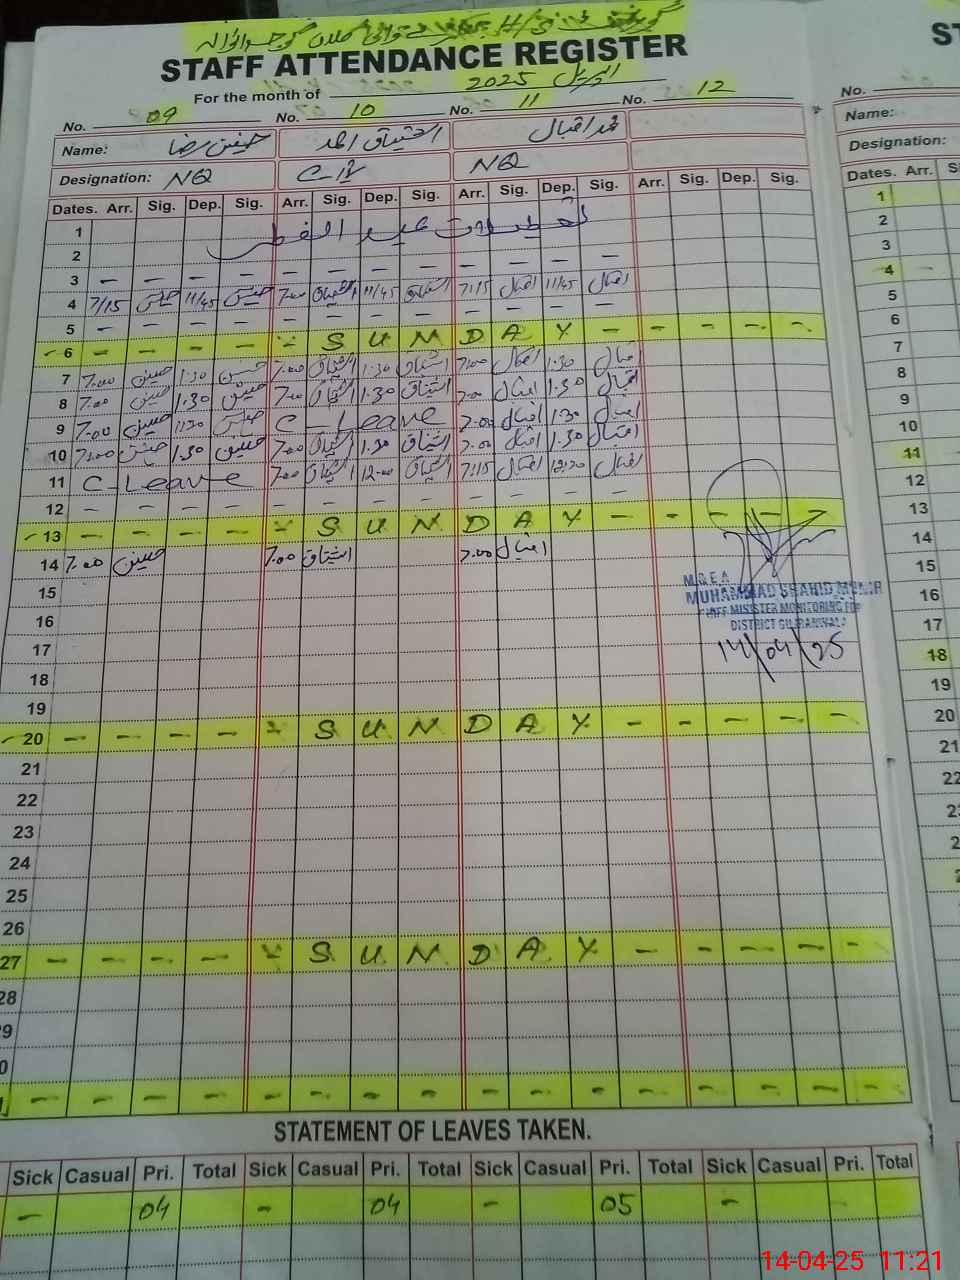 STAFF ATTENDANCE REGISTER
For the month of اپریل 2025
No. 09 No. 10 No. 11 No. 12 No.
Name: حسنین رضا اشتیاق احمد محمد اقبال Name:
Designation: NQ C-IV NQ Designation:
Dates. Arr. Sig. Dep. Sig. Arr. Sig. Dep. Sig. Arr. Sig. Dep. Sig. Arr. Sig. Dep. Sig. Dates. Arr.
1 تعطیلات عید الفطر
2
3 - - - - - - - - - - - -
4 7/15 حسنین 11/45 حسنین 7:00 اشتیاق 11/45 اشتیاق 7:15 اقبال 11/45 اقبال
5 - - - - - - - - - - - -
6 - - - - - S U N D A Y - - - - -
7 7:00 حسنین 1:30 حسنین 7:00 اشتیاق 1:30 اشتیاق 7:00 اقبال 1:30 اقبال
8 7:00 حسنین 1:30 حسنین 7:00 اشتیاق 1:30 اشتیاق 7:00 اقبال 1:30 اقبال
9 7:00 حسنین 1:30 حسنین C - Leave 7:00 اقبال 1:30 اقبال
10 7:00 حسنین 1:30 حسنین 7:00 اشتیاق 1:30 اشتیاق 7:00 اقبال 1:30 اقبال
11 C - Leave 7:00 اشتیاق 12:00 اشتیاق 7:15 اقبال اقبال
12 - - - - - - - - - - - -
13 - - - - - S U N D A Y - - - - -
14 7:00 حسنین 7:00 اشتیاق 7:00 اقبال
15
16
17
18
19
20 - - - - - S U N D A Y - - - - -
21
22
23
24
25
26
27 - - - - - S U N D A Y - - - - -
28
- - - - - - - - - - - - - - - -
M & E A
MUHAMMAD SHAHID MUNIR
DISTRICT GUJRANWALA
14/04/25
STATEMENT OF LEAVES TAKEN.
Sick Casual Pri. Total Sick Casual Pri. Total Sick Casual Pri. Total Sick Casual Pri. Total
- 04 - 04 - 05 - -
1
2
3
4
5
6
7
8
9
10
11
12
13
14
15
16
17
18
19
20
21
22
14-04-25 11:21